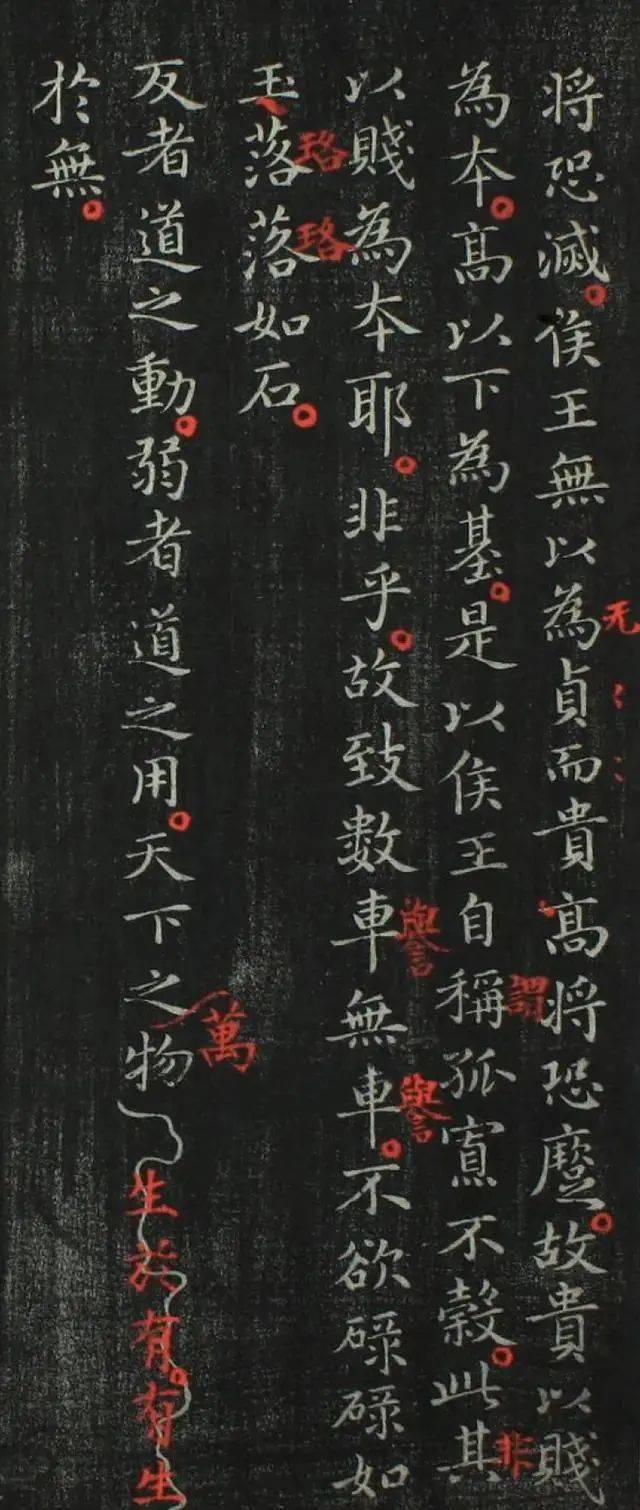 将恐滅。侯王無以為貞而貴高将恐。故貴以賤
无
為本。高以下為基。是以侯王自稱孤寡不穀。此其
謂
非
以賤為本耶。非乎。故致數車無車。不欲碌碌如
譽
譽
玉落落如石。
珞
珞
反者道之動。弱者道之用。天下之物生於有。有生
萬
於無。